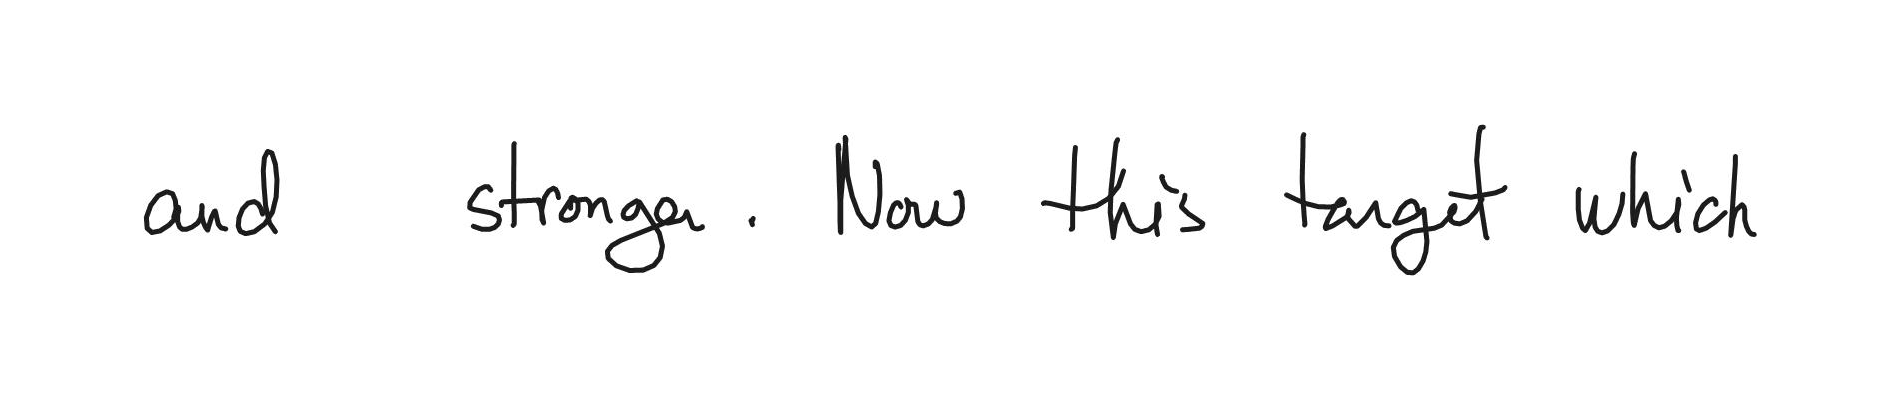 and stronger. Now this target which